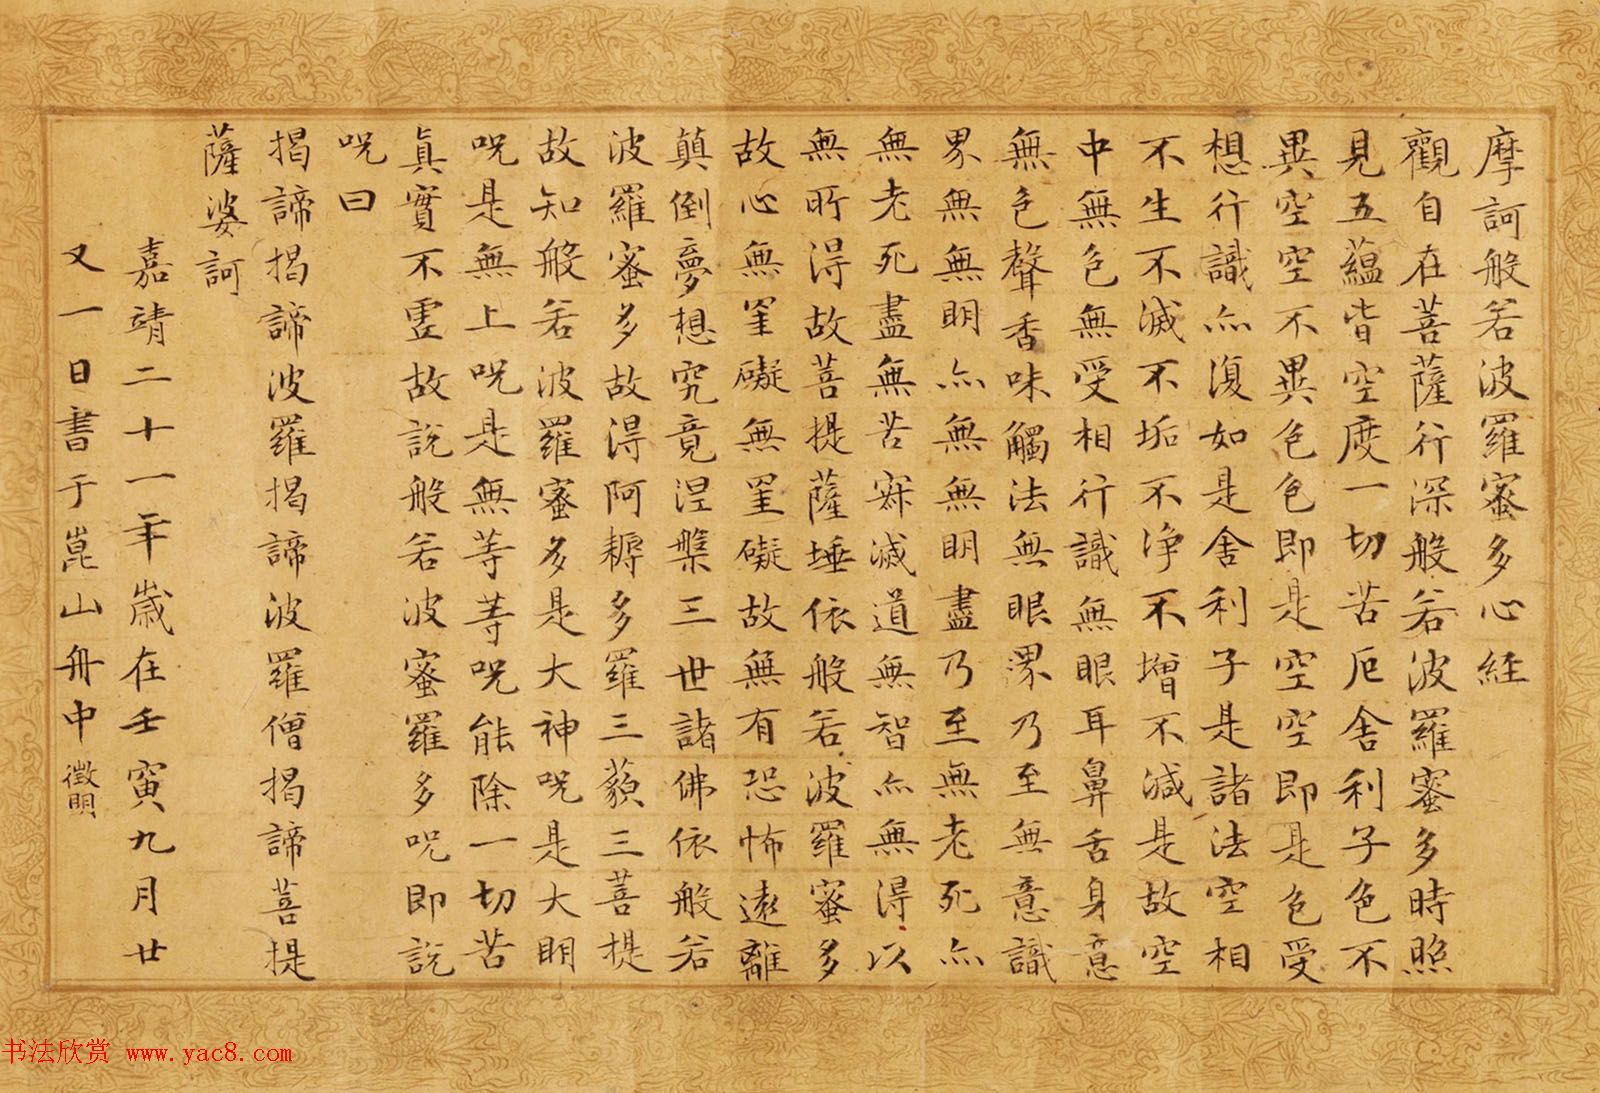 摩訶般若波羅蜜多心経
觀自在菩薩行深般若波羅蜜多時照
見五蘊皆空度一切苦厄舍利子色不
異空空不異色色即是空空即是色受
想行識亦復如是舍利子是諸法空相
不生不滅不垢不浄不增不減是故空
中無色無受相行識無眼耳鼻舌身意
無色聲香味觸法無眼界乃至無意識
界無無明亦無無明盡乃至無老死亦
無老死盡無苦寂滅道無智亦無得以
無所得故菩提薩埵依般若波羅蜜多
故心無罣礙無罣礙故無有恐怖遠離
顛倒夢想究竟涅槃三世諸佛依般若
波羅蜜多故得阿耨多羅三藐三菩提
故知般若波羅蜜多是大神呪是大明
呪是無上呪是無等等呪能除一切苦
真實不虛故說般若波蜜羅多呪即説
呪曰
揭諦揭諦波羅揭諦波羅僧揭諦菩提
薩婆訶
嘉靖二十一年歲在壬寅九月廿
又一日書于崑山舟中 徵明
书法欣赏 www.yac8.com